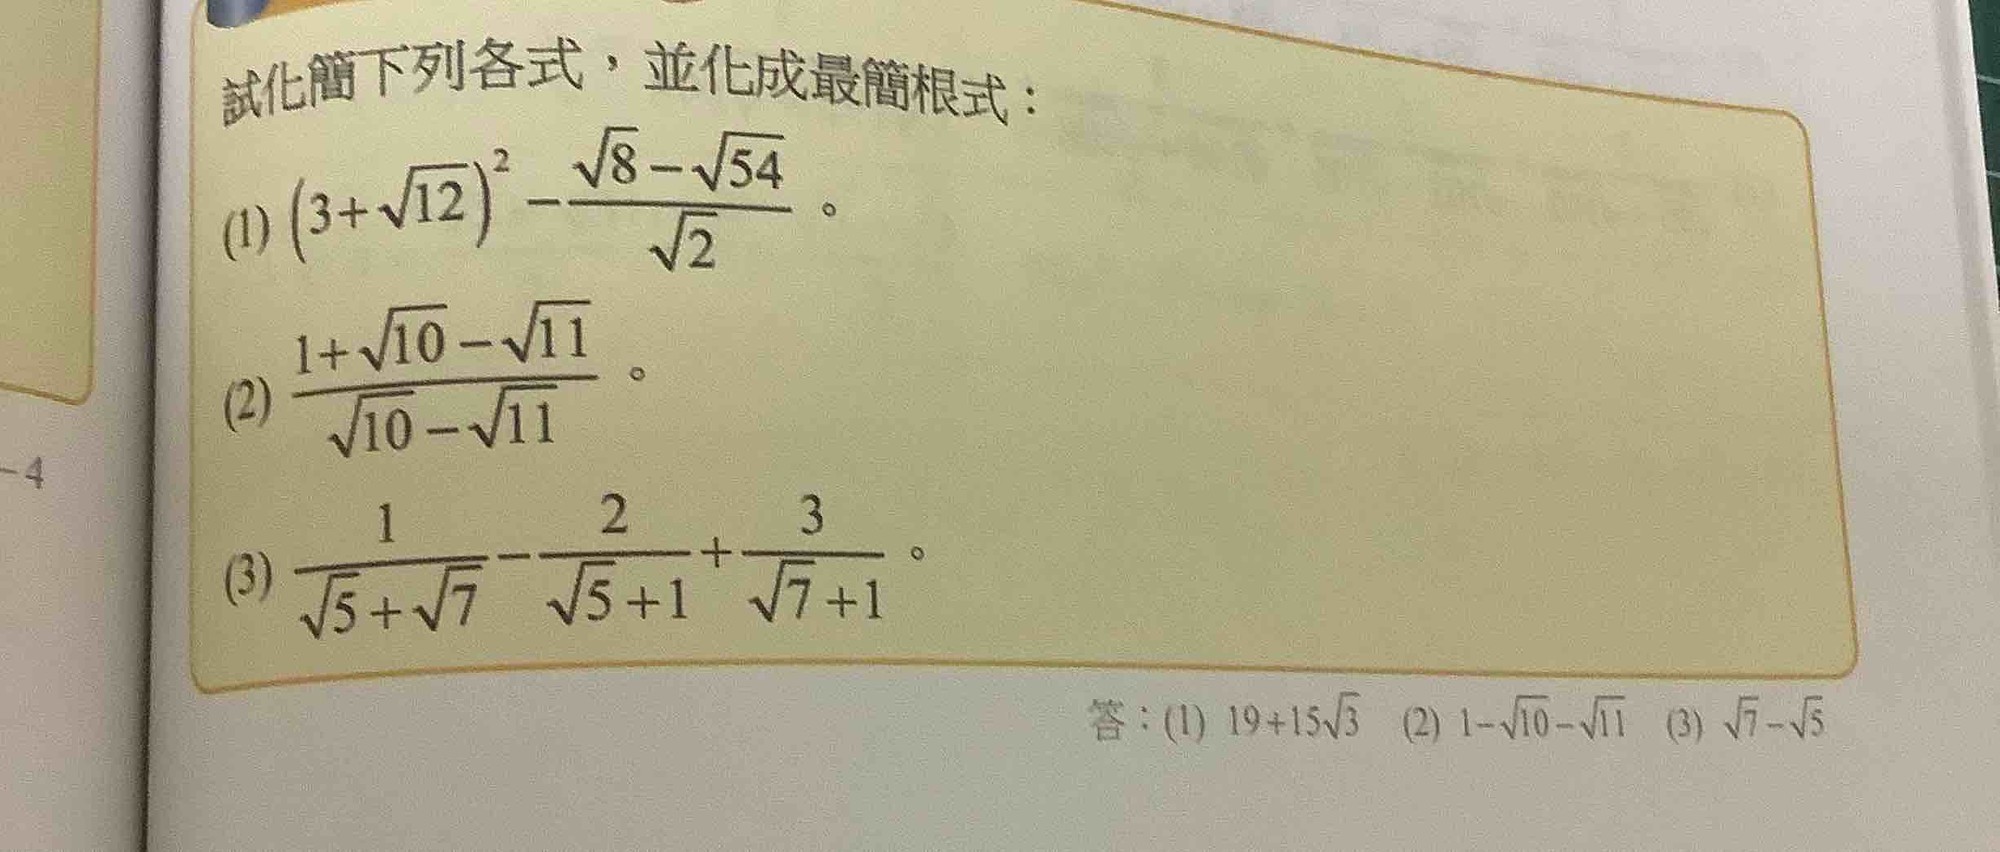 試化簡下列各式，並化成最簡根式：
(1) (3+√12)² − (√8−√54)/√2 。
(2) (1+√10−√11)/(√10−√11) 。
(3) 1/(√5+√7) − 2/(√5+1) + 3/(√7+1) 。
−4
答：(1) 19+15√3 (2) 1−√10−√11 (3) √7−√5